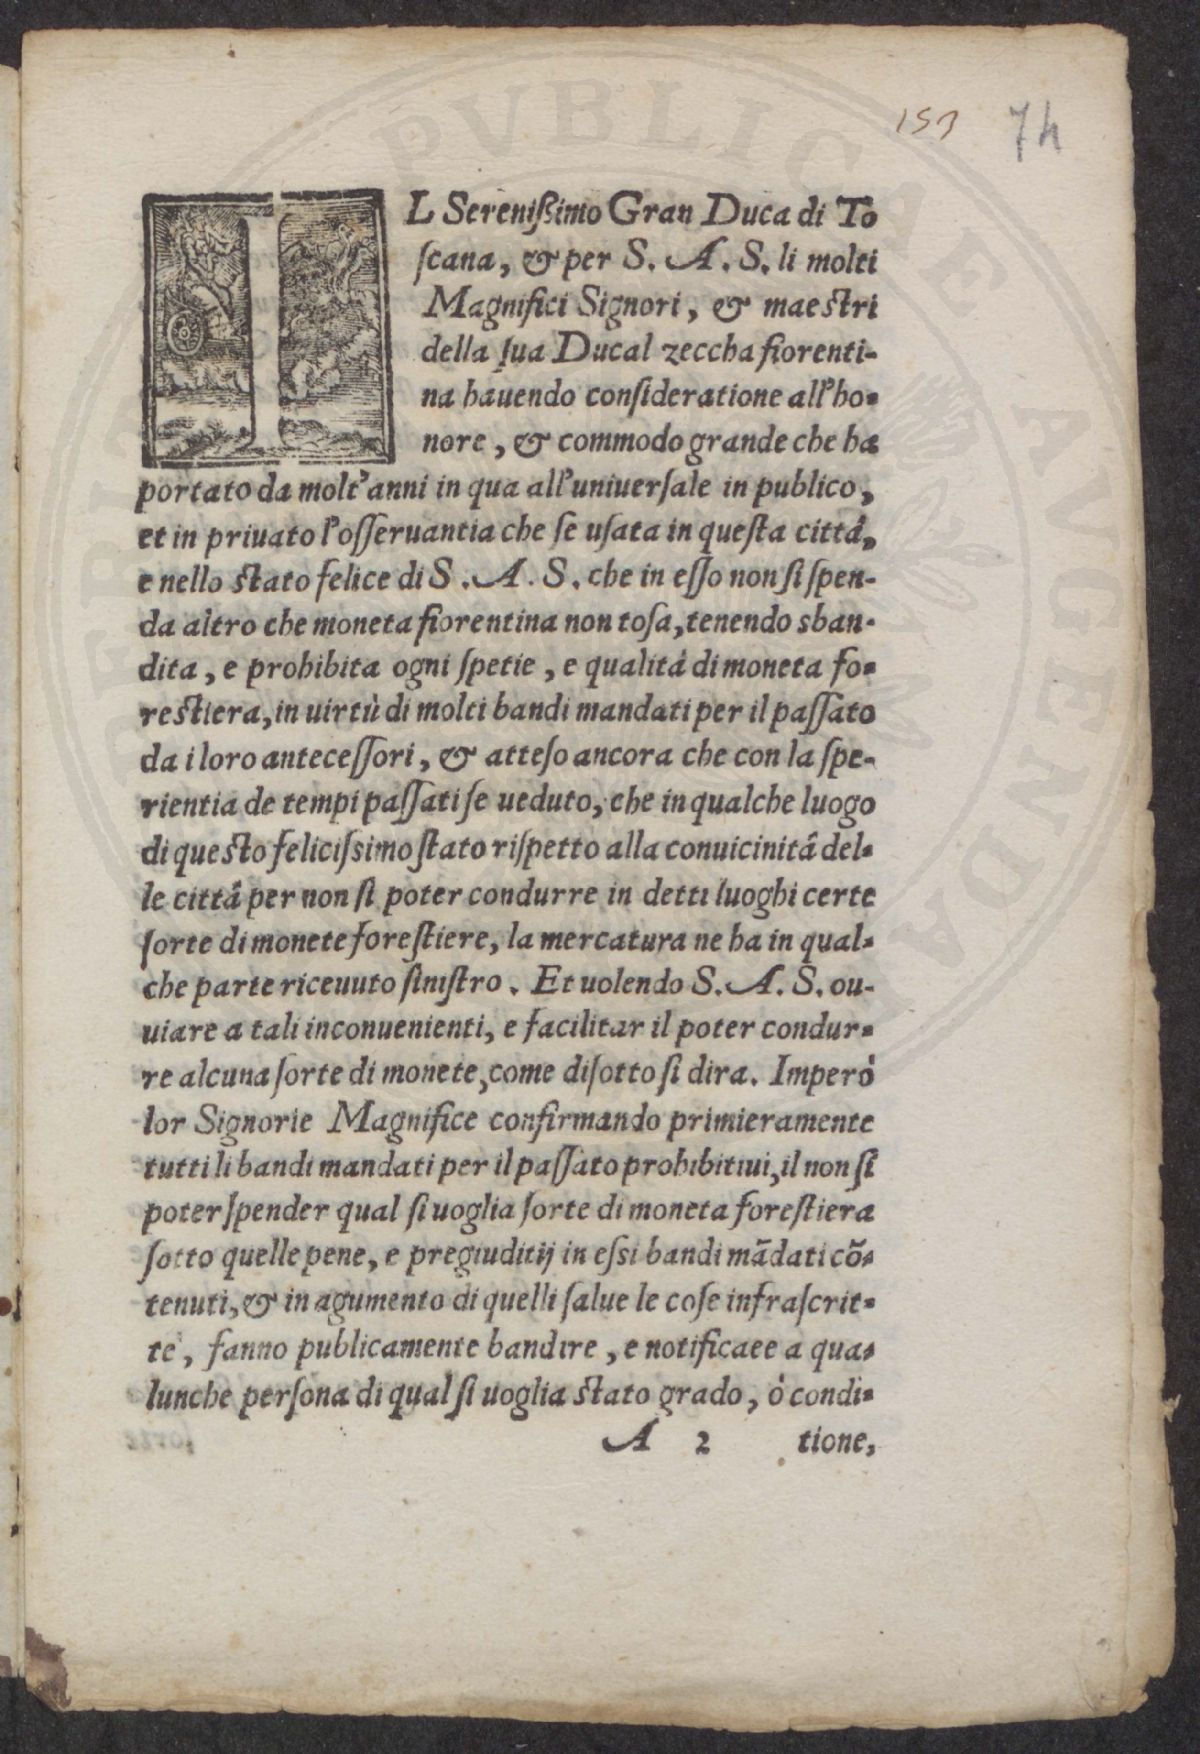 153 74
IL Sereniſſimo Gran Duca di To
ſcana, & per S. A. S. li molti
Magnifici Signori, & maeſtri
della ſua Ducal zeccha fiorenti-
na hauendo conſideratione all'ho-
nore, & commodo grande che ha
portato da molt'anni in qua all'uniuerſale in publico,
et in priuato l'oſſeruantia che ſe uſata in queſta cittá,
e nello ſtato felice di S. A. S. che in eſſo non ſi ſpen-
da altro che moneta fiorentina non toſa, tenendo sban-
dita, e prohibita ogni ſpetie, e qualitá di moneta fo-
reſtiera, in uirtù di molti bandi mandati per il paſſato
da i loro anteceſſori, & atteſo ancora che con la ſpe-
rientia de tempi paſſati ſe ueduto, che in qualche luogo
di queſto feliciſsimo ſtato riſpetto alla conuicinitá del-
le cittá per non ſi poter condurre in detti luoghi certe
ſorte di monete foreſtiere, la mercatura ne ha in qual-
che parte riceuuto ſiniſtro. Et uolendo S. A. S. ou-
uiare a tali inconuenienti, e facilitar il poter condur-
re alcuna ſorte di monete, come diſotto ſi dira. Imperò
lor Signorie Magnifice confirmando primieramente
tutti li bandi mandati per il paſſato prohibitiui, il non ſi
poter ſpender qual ſi uoglia ſorte di moneta foreſtiera
ſotto quelle pene, e pregiuditij in eſsi bandi mãdati cõ-
tenuti, & in agumento di quelli ſalue le coſe infraſcrit-
te, fanno publicamente bandire, e notificaee a qua-
lunche perſona di qual ſi uoglia ſtato grado, ò condi-
A 2 tione,
PVBLICAE AVGENDA